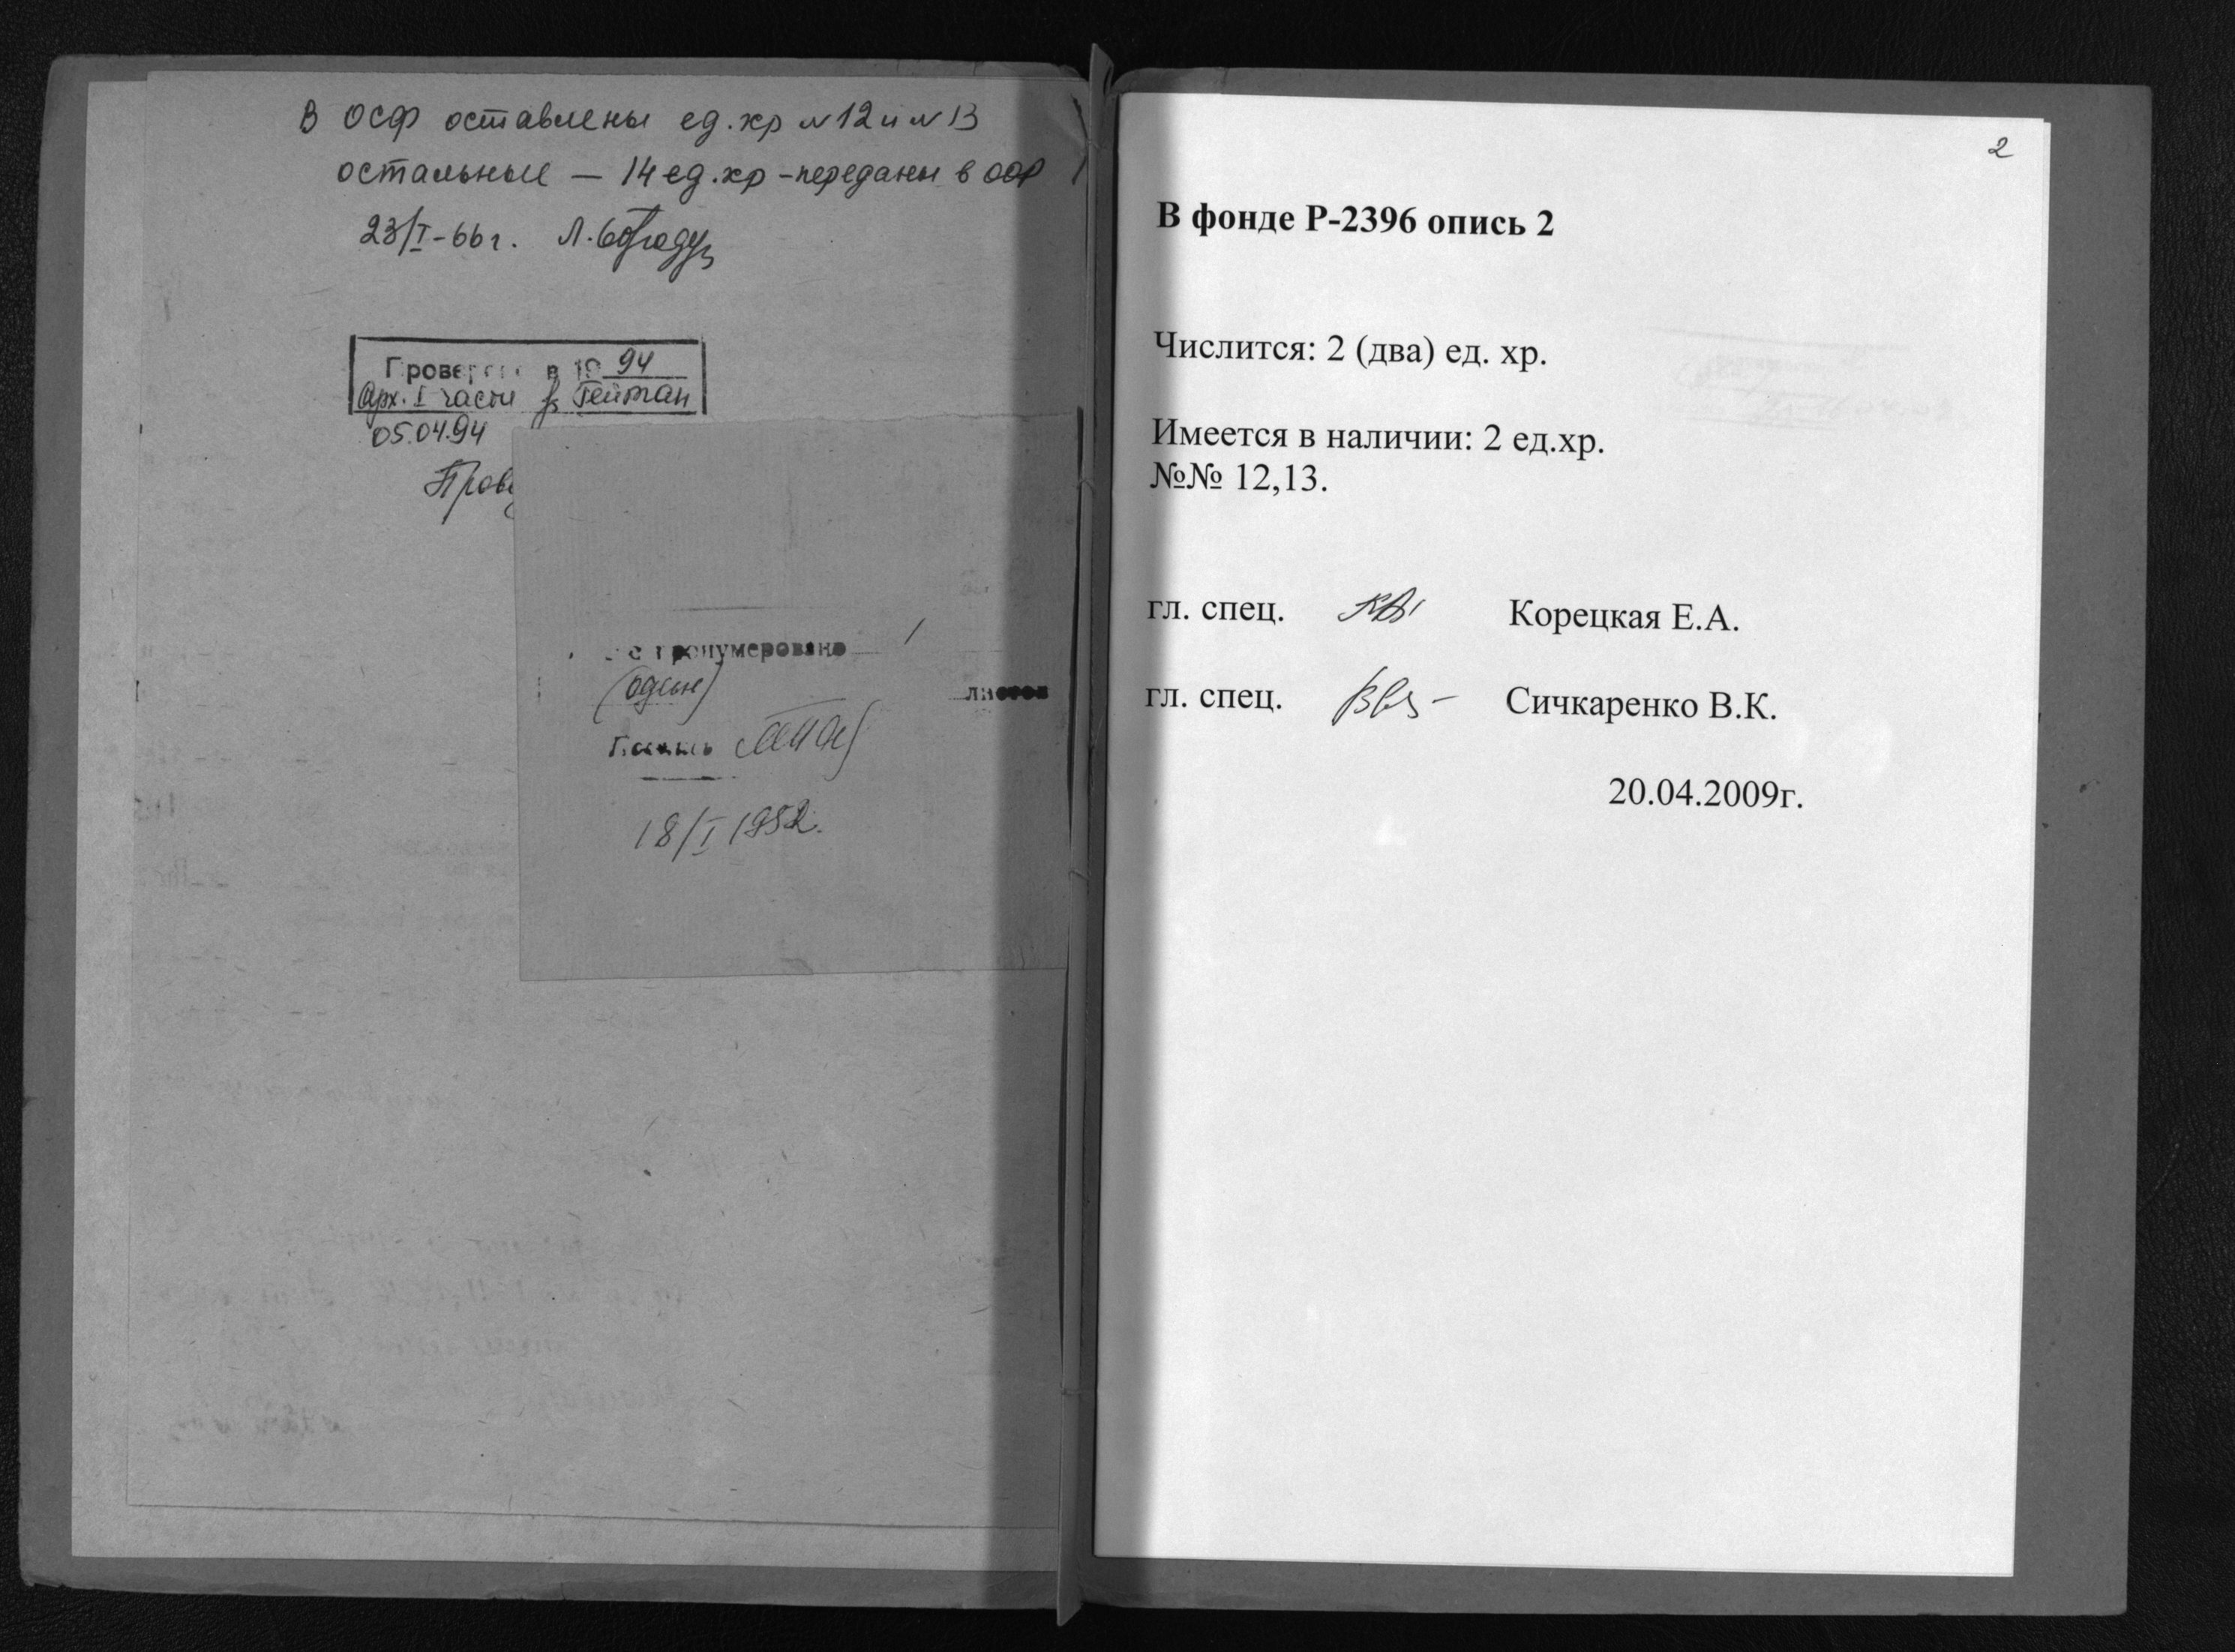 В ОСФ оставлены ед. хр №12 и №13
остальные — 14 ед. хр - переданы в
23/I-66 г. Л.
Проверено в 1994
Арх. I части Гейтан
05.04.94
пронумеровано 1
(один)
листов
18/I 1952.
2
В фонде Р-2396 опись 2
Числится: 2 (два) ед. хр.
Имеется в наличии: 2 ед.хр.
№№ 12,13.
гл. спец. Корецкая Е.А.
гл. спец. Сичкаренко В.К.
20.04.2009г.